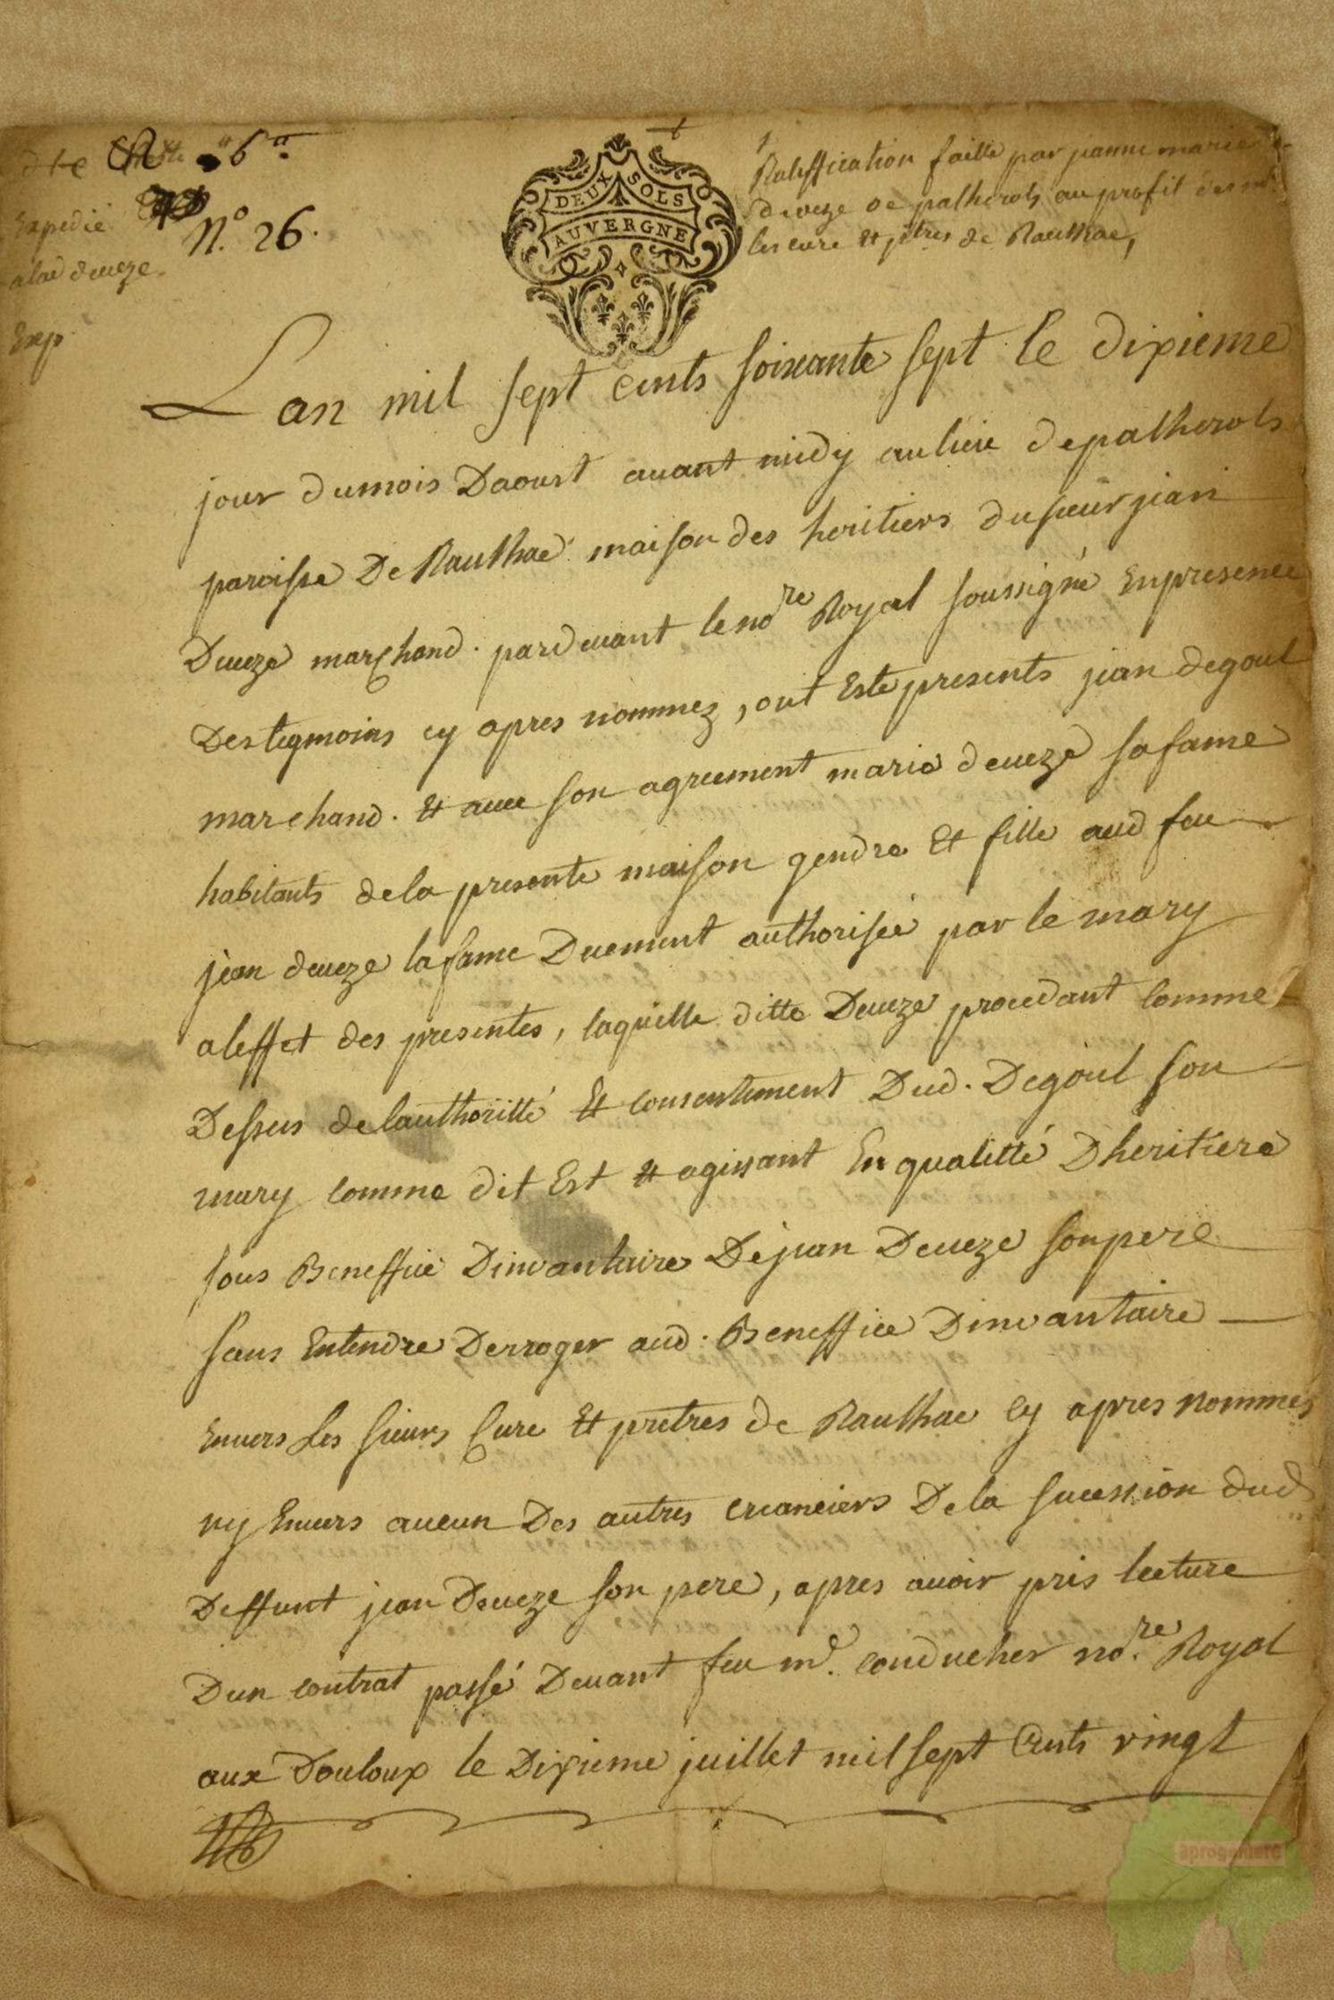 6
Expedié
N.º 26.
alad deveze.
Exp.
DEUX SOLS
AUVERGNE
Rateffication faitte par janne marie
deveze de palherols au profit des
les cure et ptres de Raulhac,
Lan mil sept cents soixante sept le dixieme
jour dumois Daoust avant midy aulieu depalherols
paroisse De Raulhac maison des heritiers dusieur jean
Deveze marchand. pardevant leno.re Royal soussigné Enpresence
Destegmoins cy apres nommez, ont Estépresents jean degoul
marchand. et avec son agreement marie deveze safame
habitants dela presente maison gendre et fille aud feu
jean deveze lafame Duement authorisée par le mary
aleffet des presentes, laquelle ditte Deveze procedant comme
Dessus delauthoritté et consentement Dud. Degoul son
mary comme dit Est et agissant En qualitté Dheritiere
sous Beneffice Dinvantaire Dejean Deveze sonpere
sans Entendre Derroger aud. Beneffice Dinvantaire
Envers Les sieurs Cure et pretres de Raulhac cy apres nommes
ny Envers aucun Des autres creanciers De la sucession dud
Deffunt jean Deveze son pere, apres avoir pris lecture
Dun contrat passé Devant feu me. conducher no.re Royal
aux Douloux le Dixieme juillet mil sept Cents vingt
aprogemere